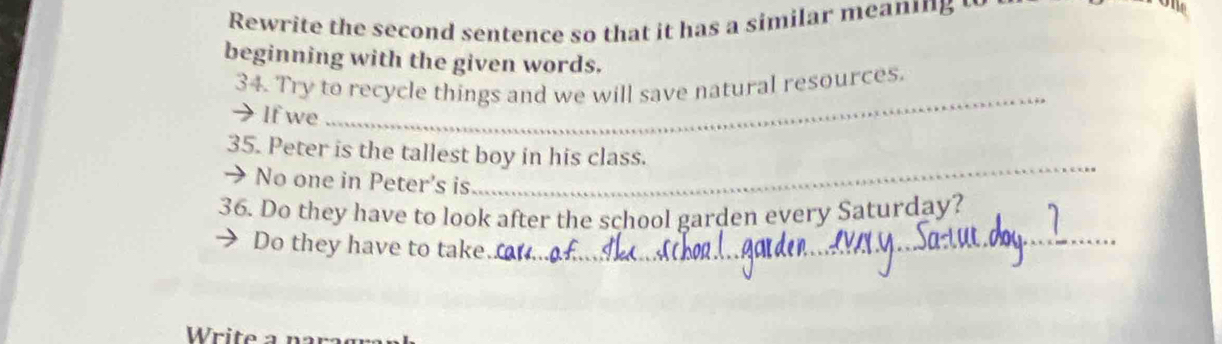 Rewrite the second sentence so that it has a similar meaning
beginning with the given words.
34. Try to recycle things and we will save natural resources.
→ If we
35. Peter is the tallest boy in his class.
→ No one in Peter's is
36. Do they have to look after the school garden every Saturday?
→ Do they have to take care of the school garden every Saturday ?
Write a paragraph